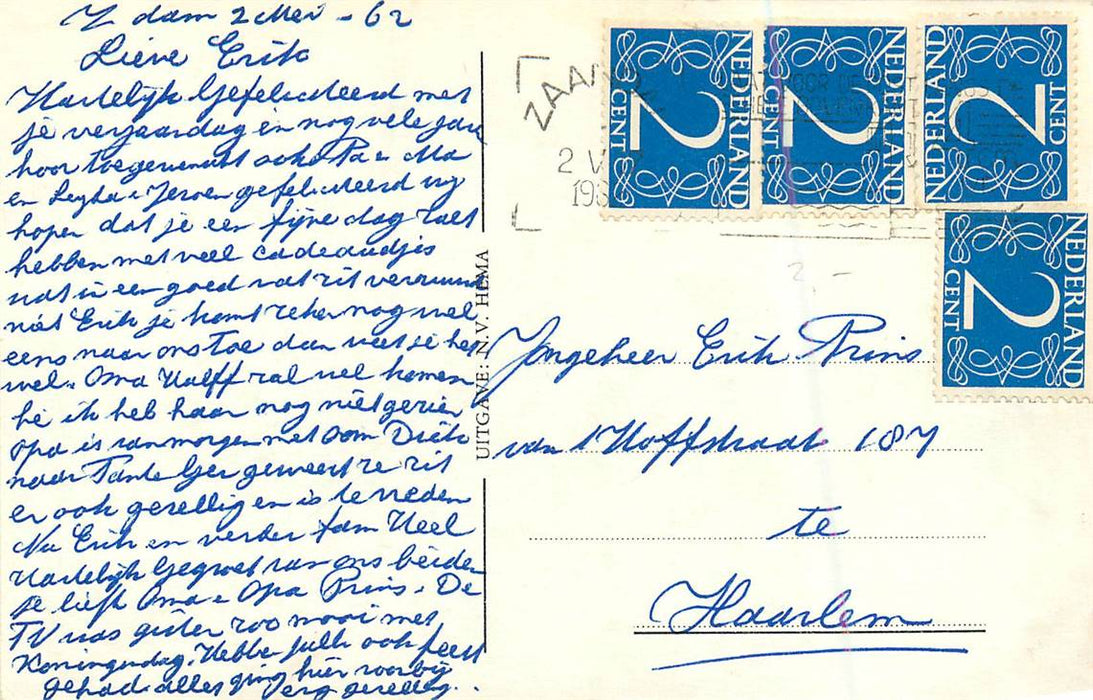 Z dam 2 Mei - 62
Lieve Erik
Hartelijk Gefeliciteerd met
je verjaardag en nog vele jare
hoor toegewenst ook Pa en Ma
en Jeroen gefeliciteerd wij
hopen dat je een fijne dag zult
hebben met veel cadeaudjes
wat in een goed vat zit verzuurd
niet Erik je komt zeker nog wel
eens naar ons toe dan weet je het
wel. Oma Kalff zal wel komen
hé ik heb haar nog niet gezien
opa is vanmorgen met Oom Dick
naar Tante Ger geweest ze zit
er ook gezellig en is tevreden
Nu Erik en verder fam Heel
Hartelijk Gegroet van ons beiden
je liefh Oma en Opa Prins. De
TV was gister zoo mooi met
Koninginedag. Hebben jullie ook feest
gehad alles ging hier voorbij
erg gezellig.
UITGAVE: N.V. HEMA
ZAAN
2 V
196
NEDERLAND
2
CENT
NEDERLAND
2
CENT
NEDERLAND
2
CENT
NEDERLAND
2
CENT
2,-
Jongeheer Erik Prins
van 't Hoffstraat 187
te
Haarlem